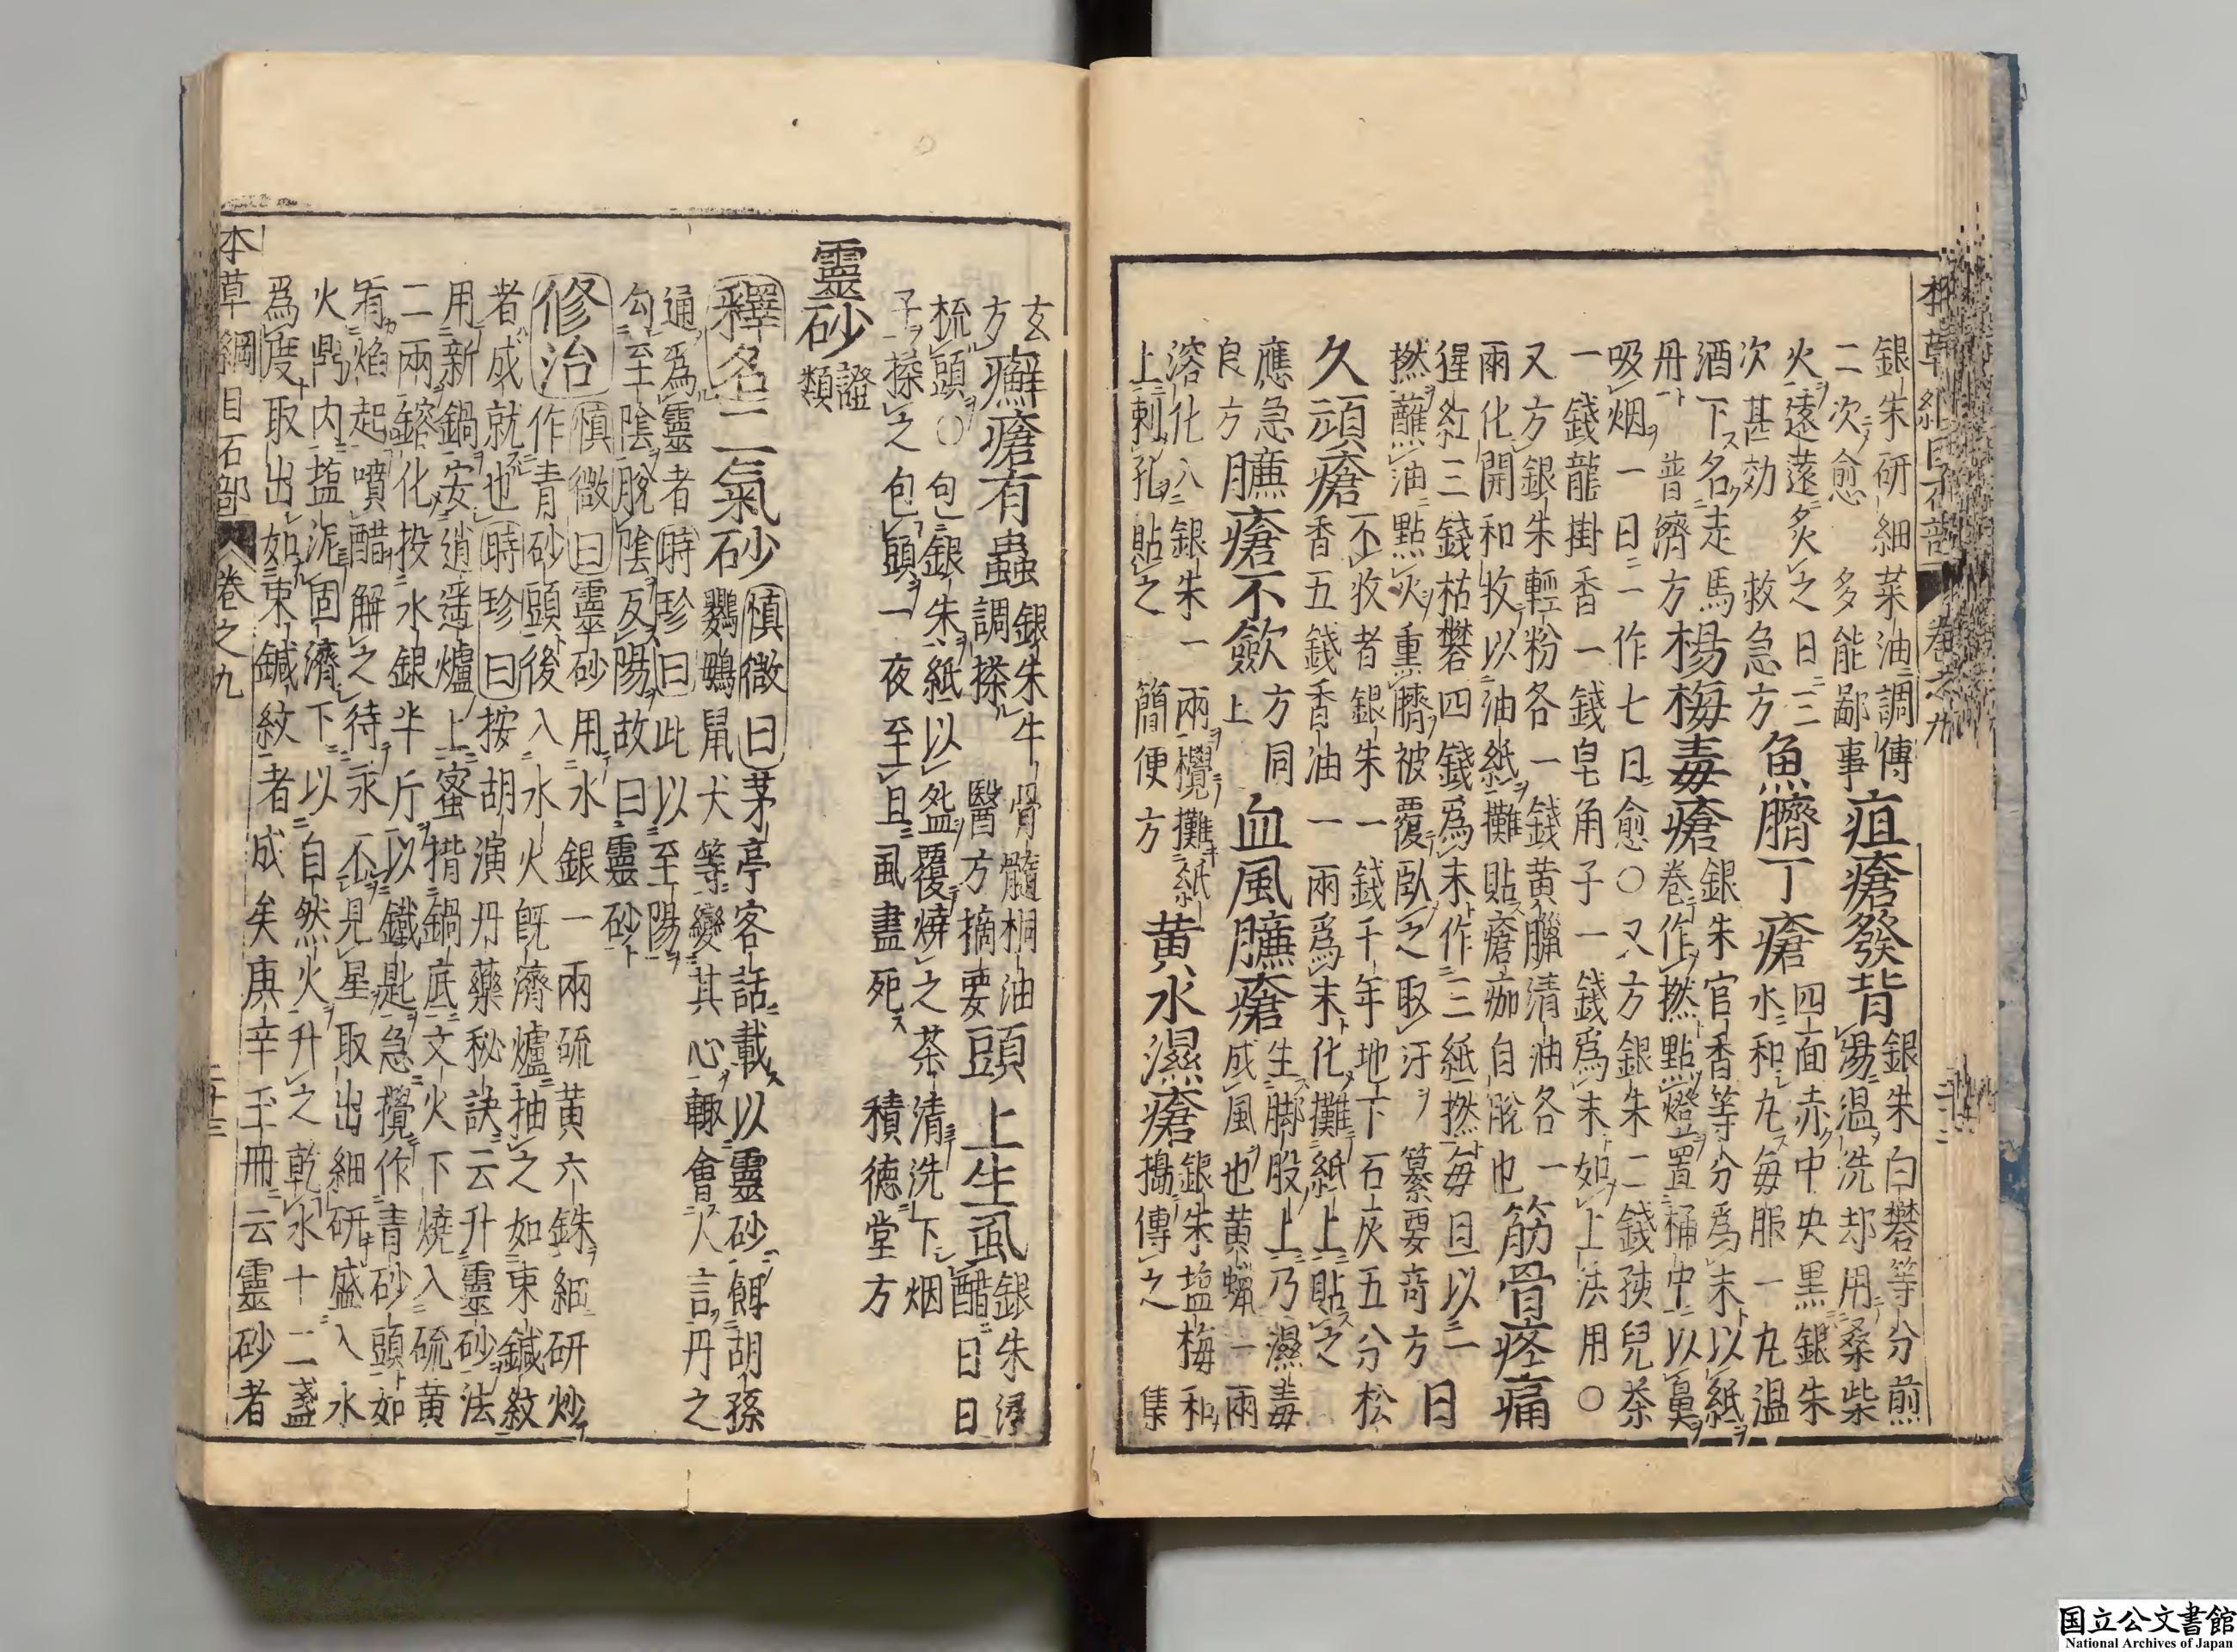 本草綱目石部 卷之九
銀朱研細菜油調傅
二次愈 多能鄙事
疽瘡發背
銀朱白礬等分煎
湯温洗却用桑柴
火遠遠炙之日三
次甚効 救急方
魚臍丁瘡
四面赤中央黒銀朱
水和丸毎服一丸温
酒下名走馬
丹 普濟方
楊梅毒瘡
銀朱官香等分爲末以紙
卷作撚點燈置桶中以鼻
吸烟一日一作七日愈〇又方銀朱二錢孩兒茶
一錢龍掛香一錢皂角子一錢爲末如上法用〇
又方銀朱輕粉各一錢黄臘清油各一
兩化開和收以油紙攤貼瘡痂自脫也
筋骨疼痛
猩紅三錢枯礬四錢爲末作三紙撚毎旦以一
撚蘸油點火熏臍被覆臥之取汗 纂要奇方
日
久頑瘡
不收者銀朱一錢千年地下石灰五分松
香五錢香油一兩爲末化攤紙上貼之
應急
良方
臁瘡不歛
方同
上
血風臁瘡
生脚股上乃濕毒
成風也黄蝋一兩
溶化入銀朱一兩攪攤紙
上刺孔貼之 簡便方
黄水濕瘡
銀朱塩梅和
搗傅之 集
玄
方
癬瘡有蟲
銀朱牛骨髓桐油
調搽 醫方摘要
頭上生虱
銀朱浸
醋日日
梳頭〇包銀朱紙以盌覆燒之茶清洗下烟
子搽之包頭一夜至旦虱盡死 積德堂方
靈砂
證
類
釋名二氣砂
慎微曰茅亭客話載以靈砂餌胡孫
鸚鵡鼠犬等變其心輙會人言丹之
通爲靈者時珍曰此以至陽
勾至陰脫陰反陽故曰靈砂
修治
慎微曰靈砂用水銀一兩硫黄六銖細研炒
作青砂頭後入水火既濟爐抽之如束鍼紋
者成就也時珍曰按胡演丹藥秘訣云升靈砂法
用新鍋安逍遥爐上蜜揩鍋底文火下燒入硫黄
二兩鎔化投水銀半斤以鐵匙急攪作青砂頭如
有焰起噴醋解之待汞不見星取出細研盛入水
火鼎内塩泥固濟下以自然火升之乾水十二盞
爲度取出如束鍼紋者成矣庚辛玉冊云靈砂者
本草綱目石部 卷之九 二十三
国立公文書館
National Archives of Japan